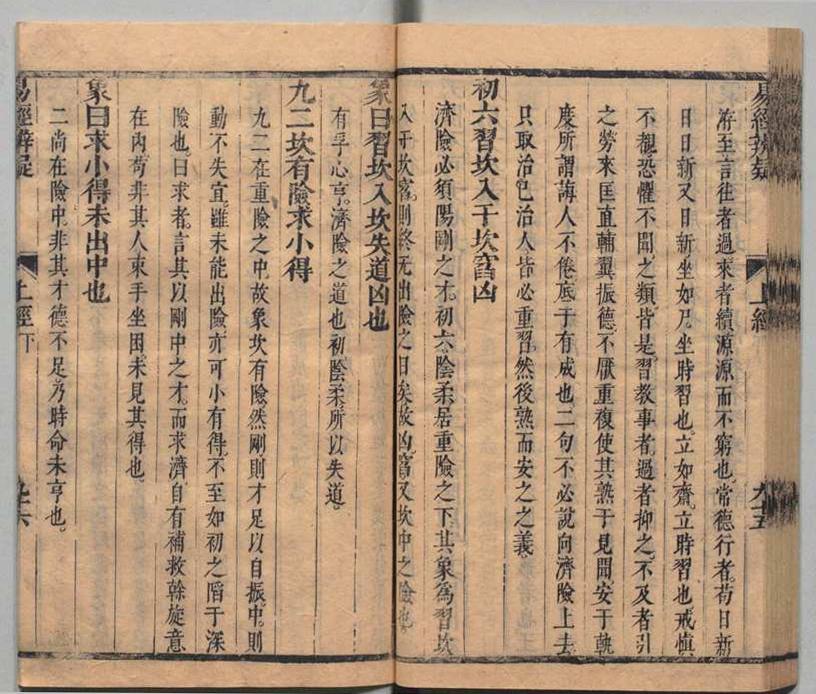 易經辨疑 上經 九十五
洊至言往者過來者續源源而不窮也常德行者苟日新
日日新又日新坐如尸坐時習也立如齋立時習也戒慎
不覩恐懼不聞之類皆是習教事者過者抑之不及者引
之勞來匡直輔翼振德不厭重複使其熟于見聞安于執
度所謂誨人不倦底于有成也二句不必說向濟險上去
只取治已治人皆必重習然後熟而安之之義
初六習坎入于坎窞凶
濟險必須陽剛之才初六陰柔居重險之下其象爲習坎
入于坎窞則終无出險之日矣故凶窞又坎中之險也
象曰習坎入坎失道凶也
有孚心亨濟險之道也初陰柔所以失道
九二坎有險求小得
九二在重險之中故象坎有險然剛則才足以自振中則
動不失宜雖未能出險亦可小有得不至如初之陷于深
險也曰求者言其以剛中之才而求濟自有補救斡旋意
在內苟非其人束手坐困未見其得也
象曰求小得未出中也
二尚在險中非其才德不足乃時命未亨也
易經辨疑 上經下 九十六